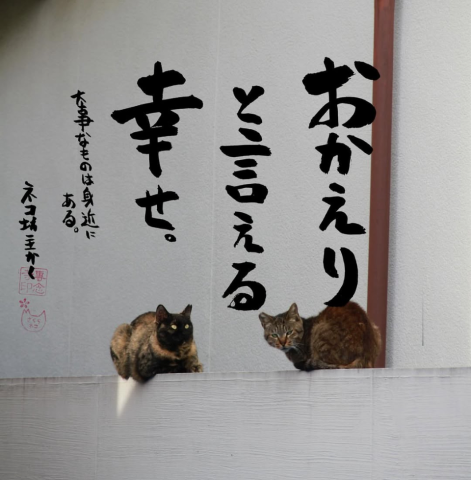 おかえり
と言える
幸せ。
大事なものは身近に
ある。
ネコ坊主かく